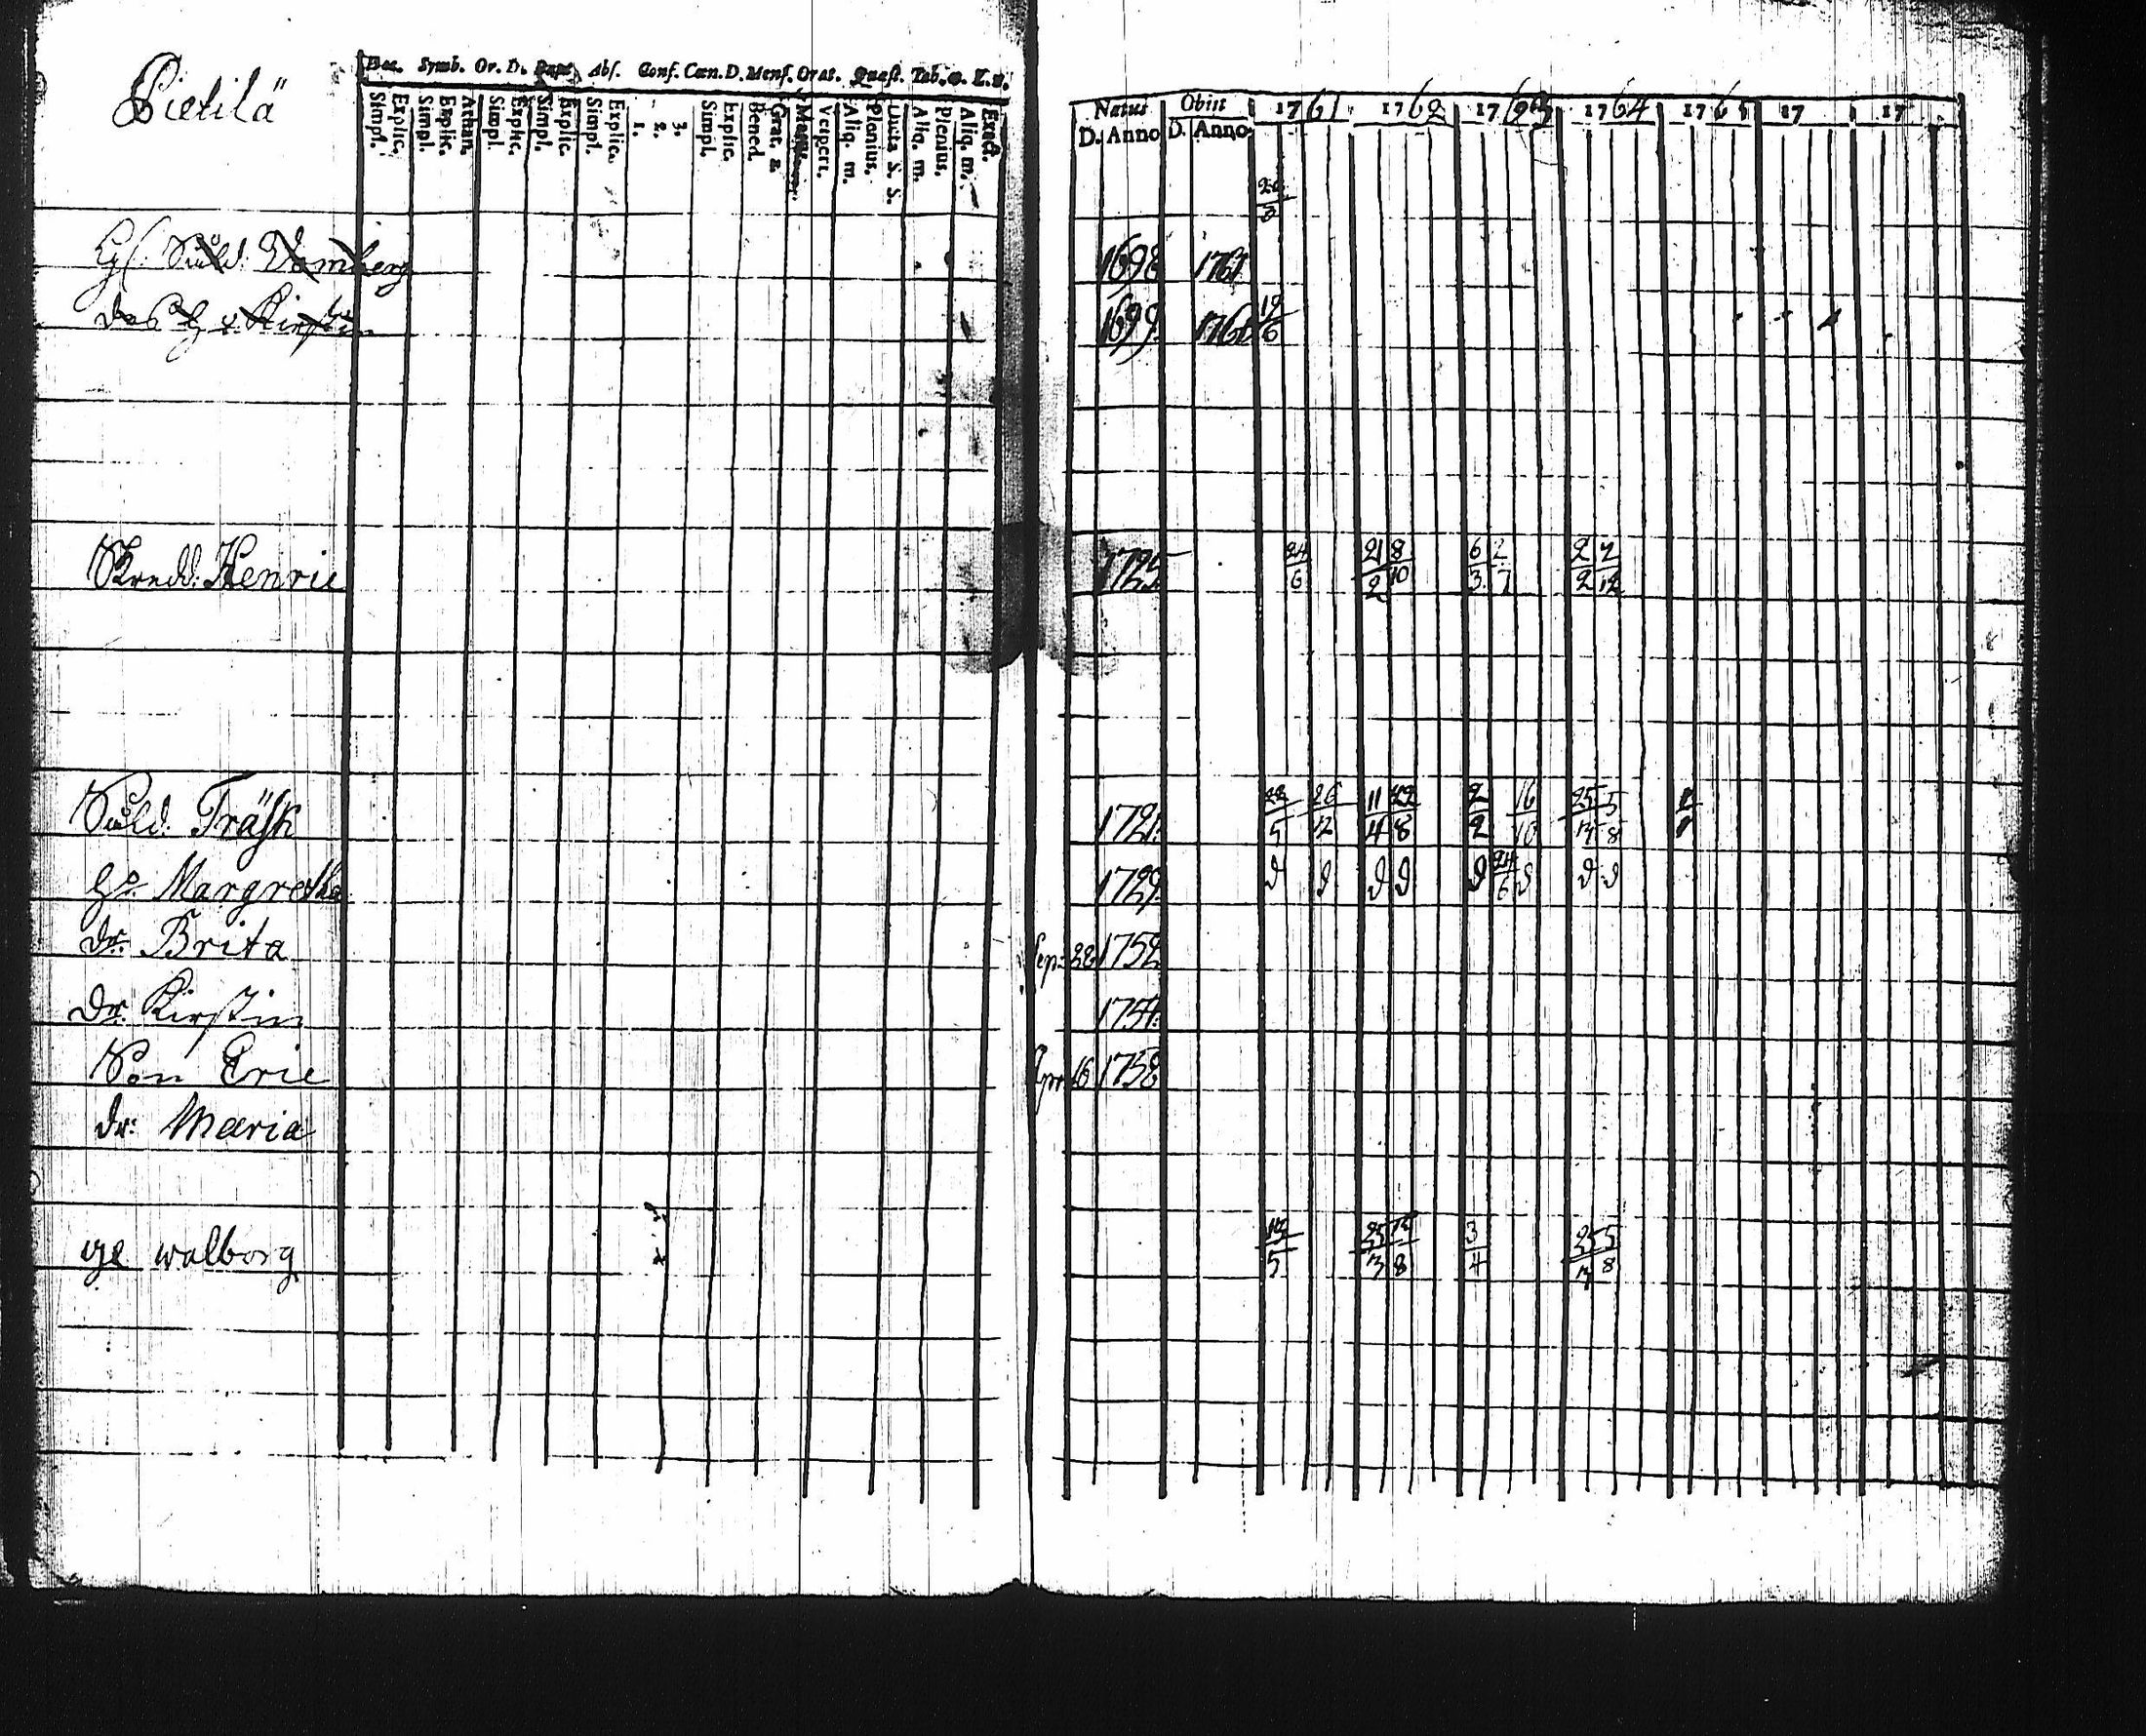 Pietilä
Dec. Symb. Or. D. Bapt. Abs. Conf. Cœn. D. Mens. Orat. Quæst. Tab. œ. L. n.
Simpl. Explic. Simpl. Explic. Athan. Simpl. Explic. Simpl. Explic. Simpl. Explic. 1. 2. 3. Simpl. Explic. Bened. Grat. a. Vespert. Aliq. m. Plenius. Dicta S. S. Aliq. m. Plenius. Aliq. m. Exact.
Natus Obiit 1761 1762 1763 1764 176 17 17
D. Anno D. Anno
1698 1761
Kirstin 1699 176 19/6
Skredd. Henric 172 24/6 21/2 8/10 6/3 2/7 2/2 2/12
Sold. Träsk 1721 22/5 26/12 11/4 22/8 2/2 16/10 25/3 5/8
H. Margretha 1729 24/6
Dr. Brita Sept 28 1752
Dr. Kirstin 1754
Son Eric Apr 16 1758
Dr. Maria
walborg 25/3 /8 3/4 25/3 5/8